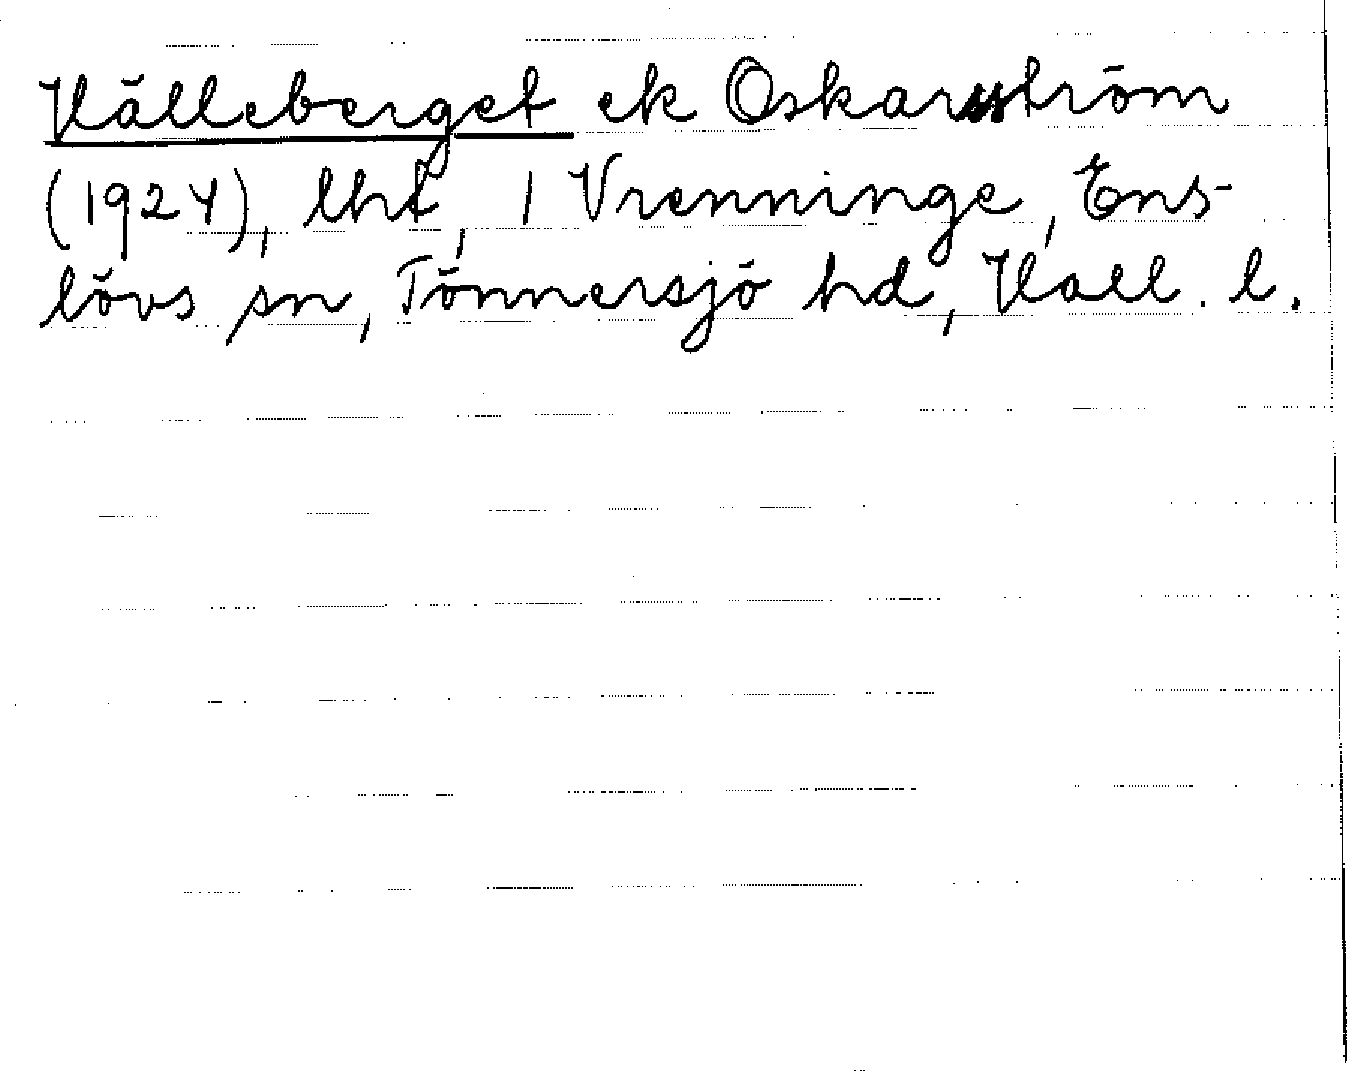 Hälleberget ek Oskarström
(1924), lht, 1 Vrenninge, Ens-
lövs sn, Tönnersjö hd, Hall. l.